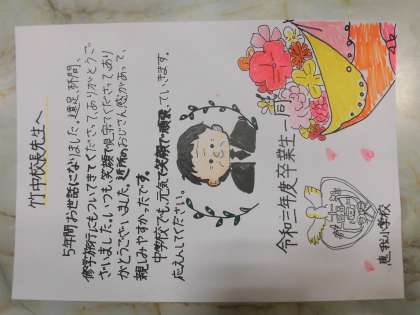 竹中校長先生へ
5年間お世話になりました。遠足、林間、
修学旅行にもついてきてくださってありがとうござ
いました。いつも笑顔で見守ってくださってあり
がとうございました。近所のおじさん感があって、
親しみやすかったです。
中学校でも元気で笑顔で頑張っていきます。
応えんしてください。
令和二年度卒業生一同
恵我小学校